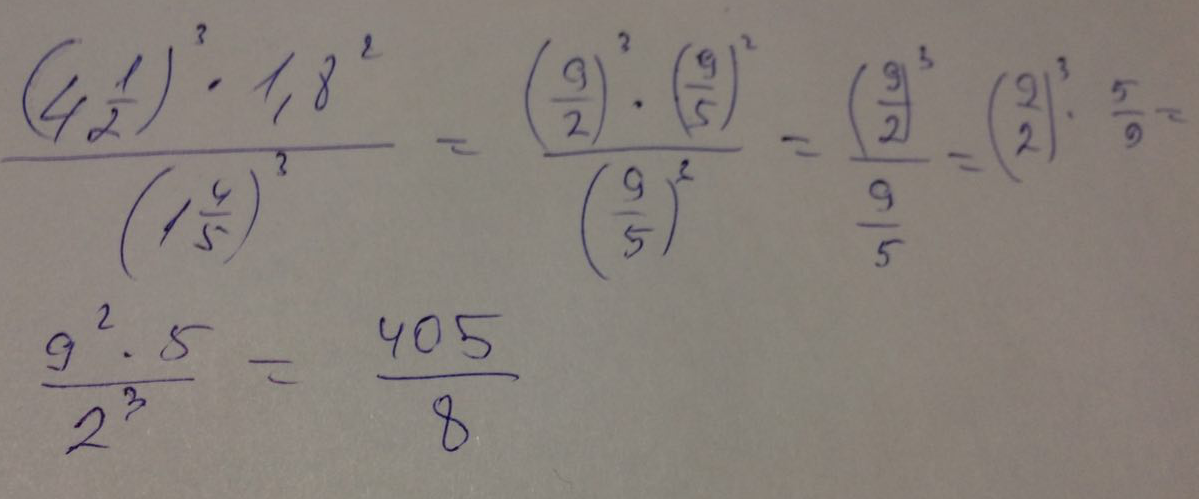 (4 1/2)³ · 1,8² / (1 4/5)³ = (9/2)³ · (9/5)² / (9/5)³ = (9/2)³ / 9/5 = (9/2)³ · 5/9 =
9² · 5 / 2³ = 405/8